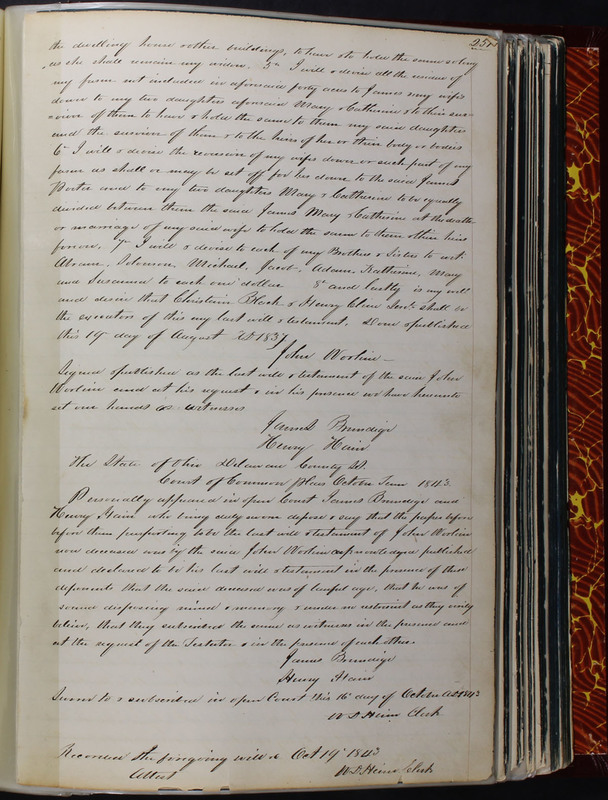 251
the dwelling house & other buildings, to have & to hold the same so long
as she shall remain my widow. 5th I will & devise all the residue of
my farm not included in aforesaid forty acres to James my wifes
dower to my two daughters aforesaid Mary & Catherine & to the sur-
vivor of them to have & hold the same to them my said daughters
and the survivor of them & to the heirs of her or their body or bodies
6th I will & devise the reversion of my wifes dower or such part of my
farm as shall or may be set off for her dower to the said James
Porter and to my two daughters Mary & Catherine to be equally
divided between them the said James Mary & Catherine at the death
or marriage of my said wife to hold the same to them & their heirs
forever. 7th I will & devise to each of my Brothers & Sisters to wit
Abram, Solomon, Michael, Jacob, Adam, Katherine, Mary
and Susanna to each one dollar 8th and lastly is my will
and desire that Christian Black & Henry Cline Senr. shall be
the executors of this my last will & testament. Done & published
this 19th day of August AD 1837
John Worline
Signed & published as the last will & testament of the said John
Worline and at his request & in his presence we have hereunto
set our hands as witnesses
James Brundige
Henry Hain
The State of Ohio Delaware County Ss.
Court of Common Pleas October Term 1843
Personally appeared in open Court James Brundige and
Henry Hain who being duly sworn depose & say that the paper before
before them purporting to be the last will & testament of John Worline
now deceased was by the said John Worline acknowledged published
and declared to be his last will & testament in the presence of these
deponents that the said deceased was of lawful age, that he was of
sound disposing mind & memory & under no restraint as they verily
believe, that they subscribed the same as witnesses in the presence and
at the request of the Testator & in the presence of each other.
James Brundige
Henry Hain
Sworn to & subscribed in open Court this 16th day of October AD 1843
W. D. Heim Clerk
Recorded the foregoing will & Oct 19th 1843
Attest W. D. Heim Clerk